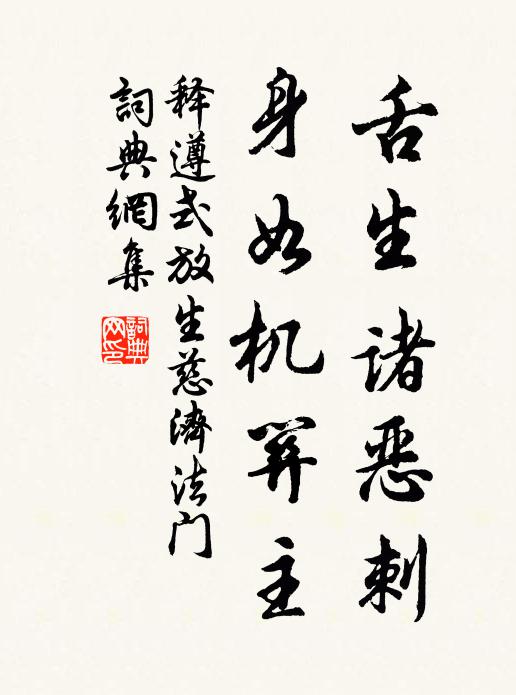 舌生诸恶刺
身如机关主
释遵式放生慈济法门
詞典網集
詞典网印